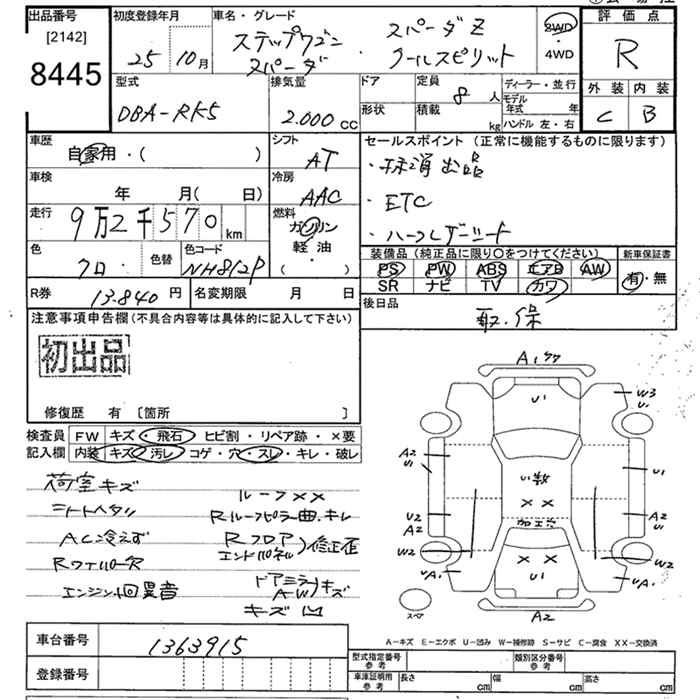 出品番号
[2142]
8445
初度登録年月
25 10月
車名・グレード
ステップワゴン・スパーダZ
スパーダ クールスピリット
2WD
・
4WD
評価点
R
外装 内装
C B
型式
DBA-RK5
排気量
2.000 cc
ドア
形状
定員
8 人
積載
kg
ディーラー・並行
モデル年式 年
ハンドル 左・右
車歴
自家用・( )
シフト
AT
車検
年 月( 日)
冷房
AAC
走行
9万2千570 km
燃料
ガソリン
軽油
( )
色
クロ・
色替
色コード
NH812P
R券
13.840 円
名変期限 月 日
セールスポイント(正常に機能するものに限ります)
・抹消出品
・ETC
・ハーフレザーシート
装備品(純正品に限り〇をつけてください)
PS PW ABS エアB AW
SR ナビ TV カワ
新車保証書
有・無
後日品
取.保
注意事項申告欄(不具合内容等は具体的に記入して下さい)
初出品
修復歴 有 [箇所 ]
検査員記入欄
FW キズ・飛石 ヒビ割・リペア跡・×要
内装 キズ・汚レ コゲ・穴・スレ・キレ・破レ
荷室キズ
シートヘタリ
AC冷えず
RワイパーR
エンジン回異音
ルーフ××
Rルーフピラー曲.キレ
Rフロア
エンドパネル)修正歪
ドアミラー
A-W)キズ
キズ凹
A1
U1
W3
U1
A2
U1
U1
××
U2
A2
W2
A2
U1
W2
UA1
××
U1
A1
スペア
A2
A-キズ E-エクボ U-凹み W-補修跡 S-サビ C-腐食 XX-交換済
車台番号
1363915
登録番号
型式指定番号
参考
類別区分番号
参考
車庫証明用
参考
長さ cm
幅 cm
高さ cm